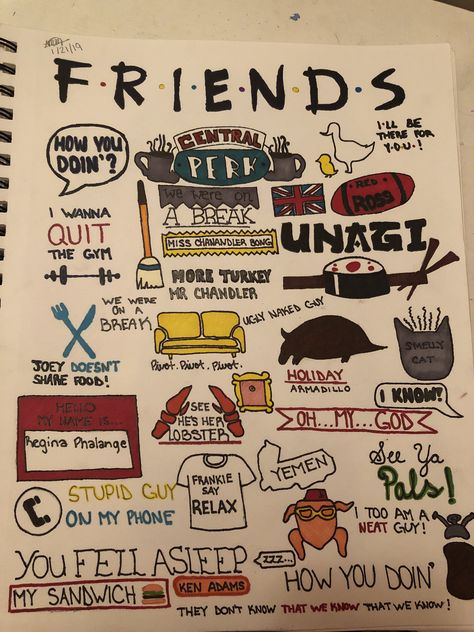 1/21/19
F.R.I.E.N.D.S
HOW YOU
DOIN'?
CENTRAL
PERK
I'LL BE
THERE FOR
Y.O.U.!
WE WERE ON
A BREAK
RED
ROSS
I WANNA
QUIT
THE GYM
MISS CHANANDLER BONG
UNAGI
MORE TURKEY
MR CHANDLER
WE WERE
ON A
BREAK
UGLY NAKED GUY
Pivot. Pivot. Pivot.
SMELLY
CAT
JOEY DOESN'T
SHARE FOOD!
HOLIDAY
ARMADILLO
I KNOW!
HELLO
MY NAME IS...
Regina Phalange
SEE
HE'S HER
LOBSTER
OH...MY...GOD
STUPID GUY
ON MY PHONE
FRANKIE
SAY
RELAX
YEMEN
See Ya
Pals!
I TOO AM A
NEAT GUY!
YOU FELL ASLEEP
ZZZ...
MY SANDWICH
KEN ADAMS
HOW YOU DOIN'
THEY DON'T KNOW THAT WE KNOW THAT WE KNOW!